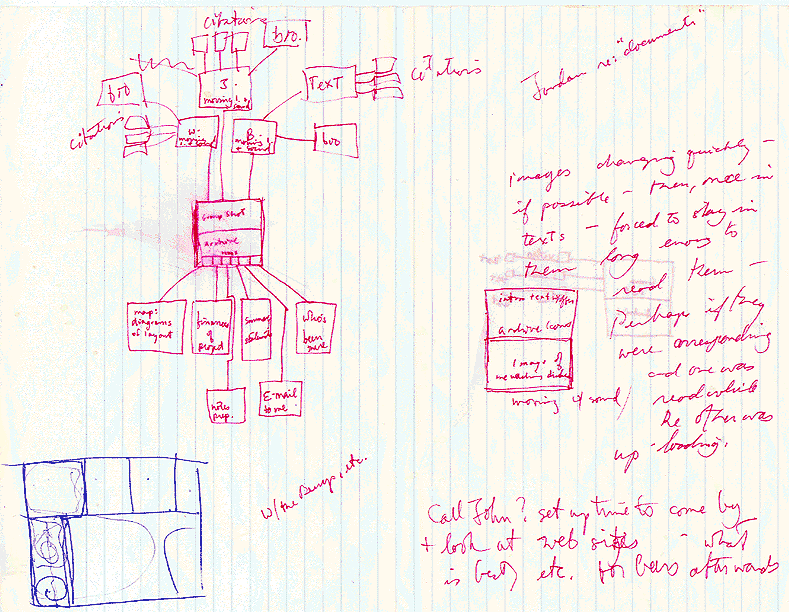 citations
bio.
J.
moving i. + sound
TEXT
citations
bio
citations
W.
moving
B.
moving i.
+ sound
bio
Jordan re: "documents"
images changing quickly –
if possible – then, once in
texts – forced to stay in
them long enough to
read them –
Perhaps if they
were corresponding
and one was
read while
the other was
up-loading.
group shot
archive
intro text
archive icons
image of
moving w/ sound
map:
diagrams
of layout
finances
of
project
who's
been
here
notes
prep.
E-mail
to me
W/ the Bumps, etc.
Call John? set up time to come by
+ look at web sites – what
is best, etc. for beers afterwards